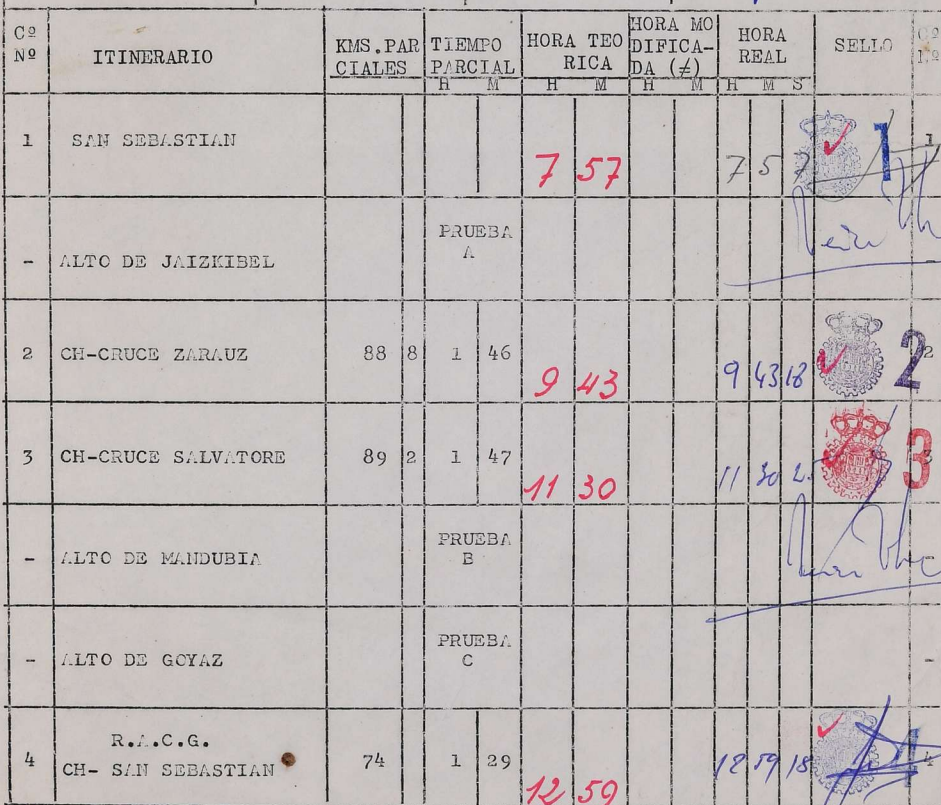 Cº Nº ITINERARIO KMS.PAR CIALES TIEMPO PARCIAL HORA TEO RICA HORA MO DIFICA- DA (≠) HORA REAL SELLO Cº
H M H M H M H M S
1 SAN SEBASTIAN 7 57 7 57 1 1
- ALTO DE JAIZKIBEL PRUEBA A -
2 CH-CRUCE ZARAUZ 88 8 1 46 9 43 9 43 18 2 2
3 CH-CRUCE SALVATORE 89 2 1 47 11 30 11 30 3 3
- ALTO DE MANDUBIA PRUEBA B
- ALTO DE GOYAZ PRUEBA C -
4 R.A.C.G. CH- SAN SEBASTIAN 74 1 29 12 59 12 59 18 4